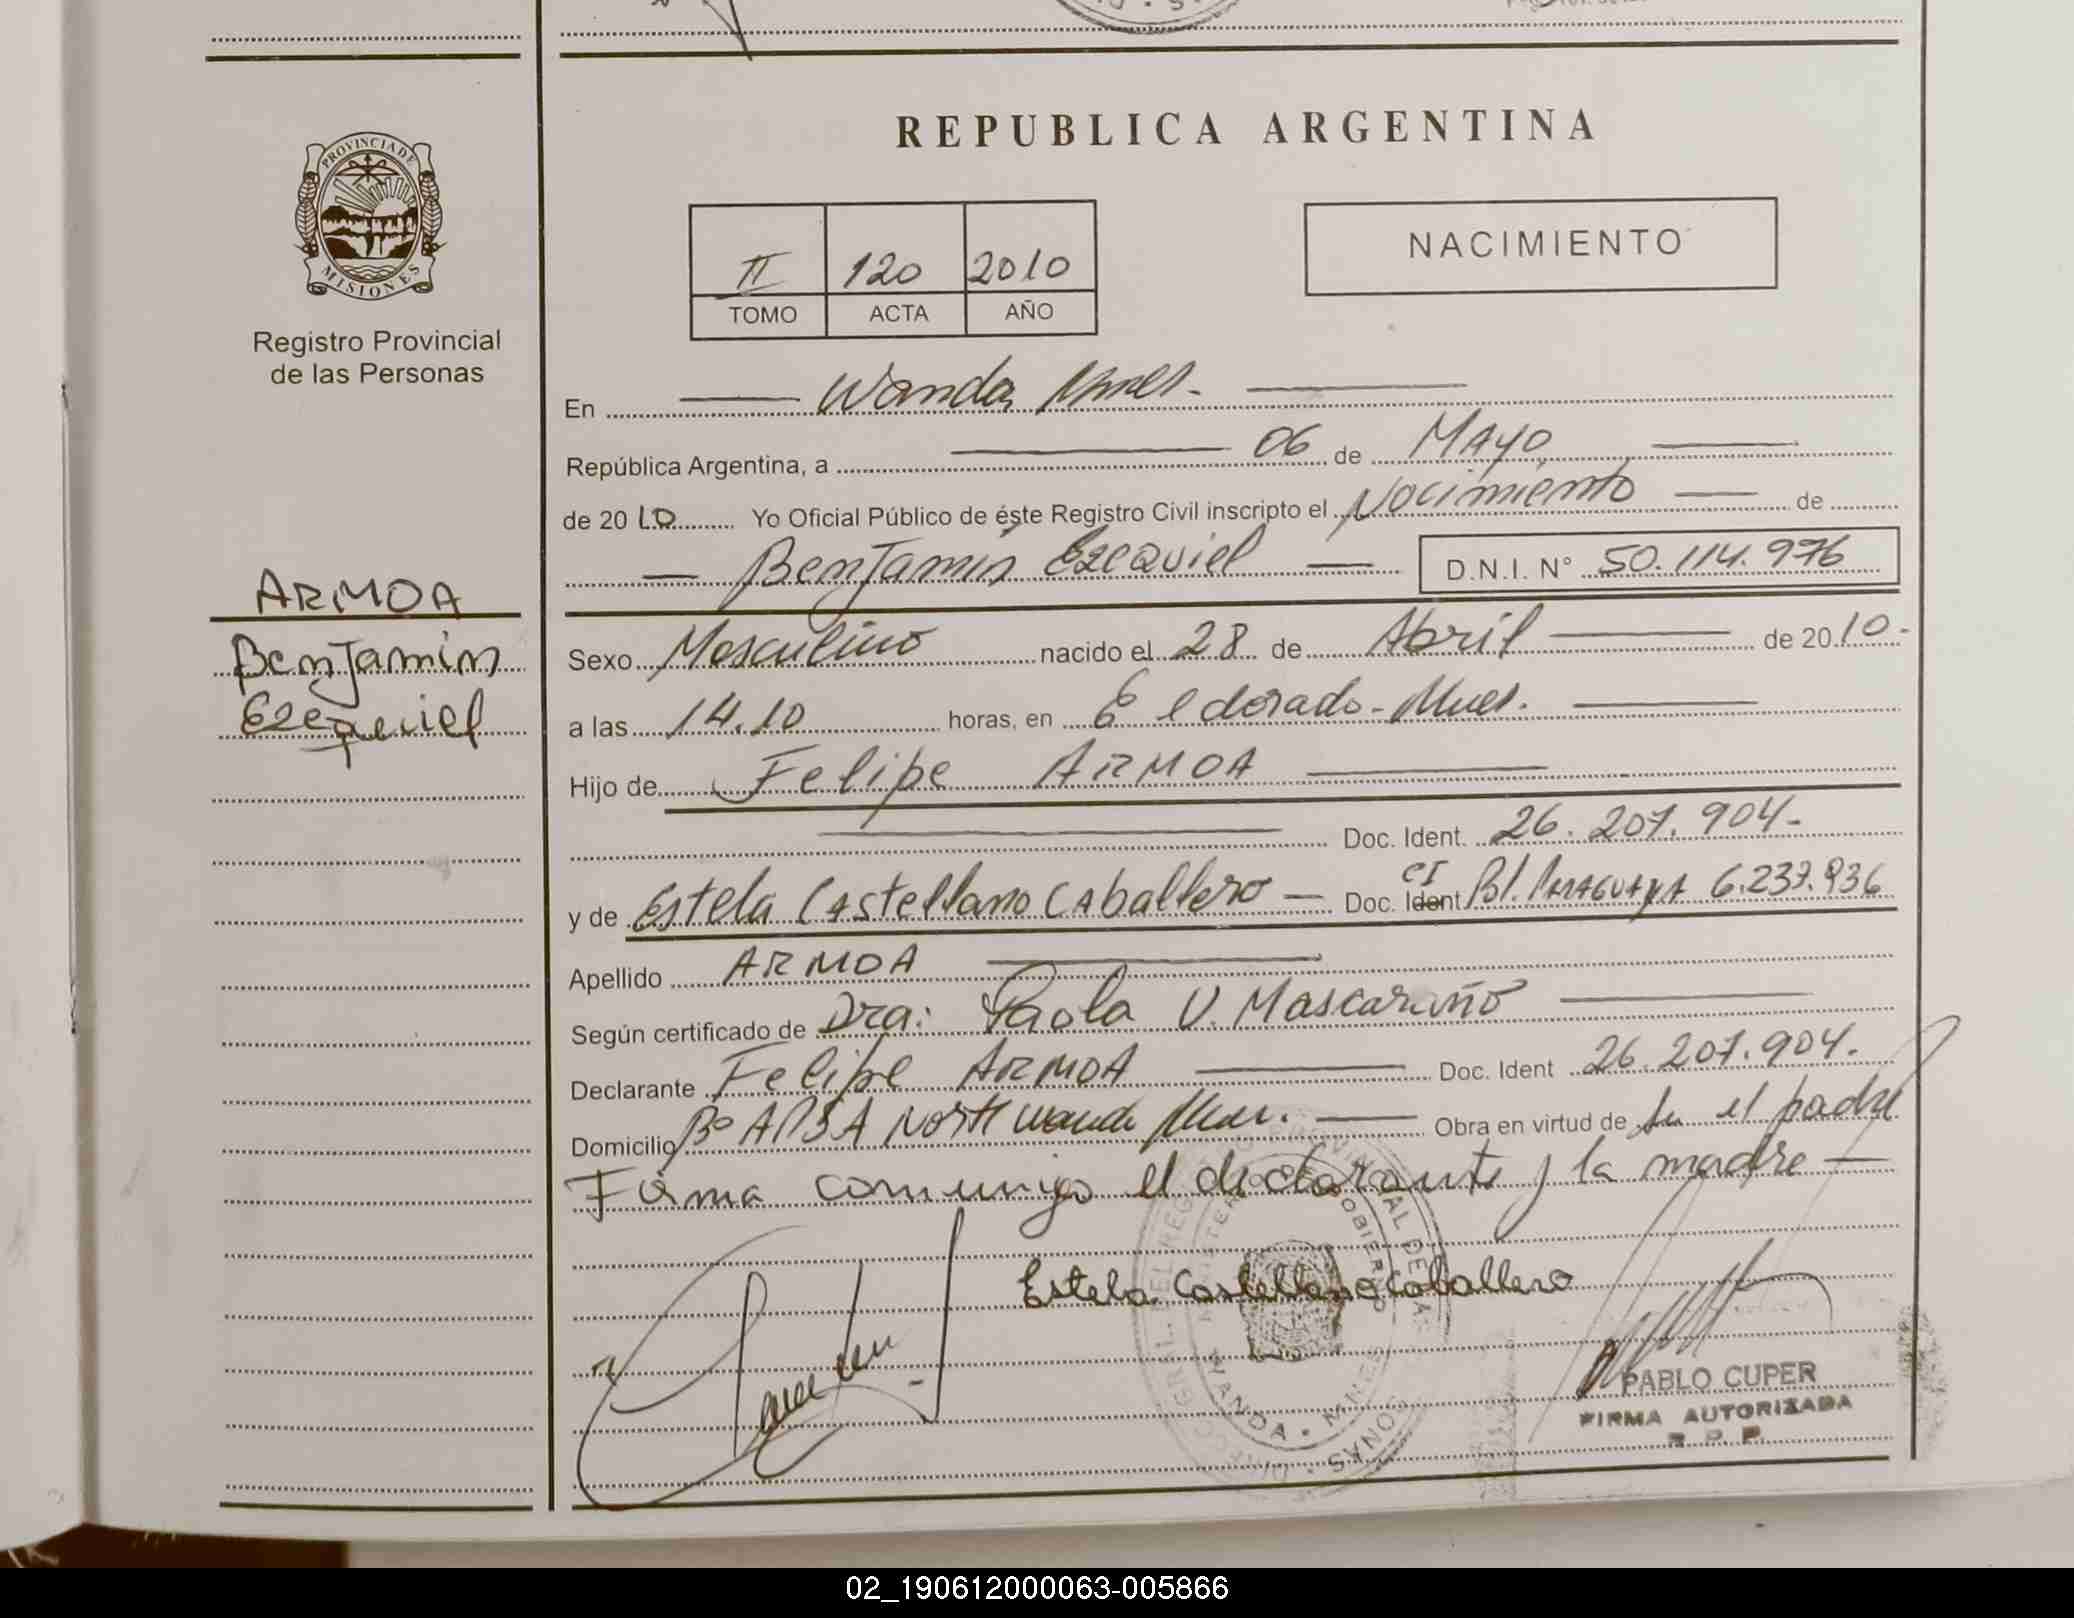 REPUBLICA ARGENTINA
PROVINCIA DE
MISIONES
Registro Provincial
de las Personas
II 120 2010
TOMO ACTA AÑO
NACIMIENTO
En Wanda Mnes.
República Argentina, a 06 de MAYO
de 2010 Yo Oficial Público de éste Registro Civil inscripto el Nacimiento de
Benjamin Ezequiel D.N.I. N° 50.114.976
ARMOA
Benjamin
Ezequiel
Sexo Masculino nacido el 28 de Abril de 2010-
a las 14.10 horas, en Eldorado - Mnes.
Hijo de Felipe ARMOA
Doc. Ident. 26.207.904-
y de Estela Castellano Caballero Doc. Ident CI Pol. PARAGUAYA 6.237.936
Apellido ARMOA
Según certificado de Dra: Paola V. Mascaraño
Declarante Felipe ARMOA Doc. Ident 26.207.904.
Domicilio Bº APSA Norte Wanda Mnes. Obra en virtud de Su el padre
Firma conmigo el declarante y la madre
Estela Castellano Caballero
WANDA • MNES
PABLO CUPER
FIRMA AUTORIZADA
R. P. P.
02_190612000063-005866